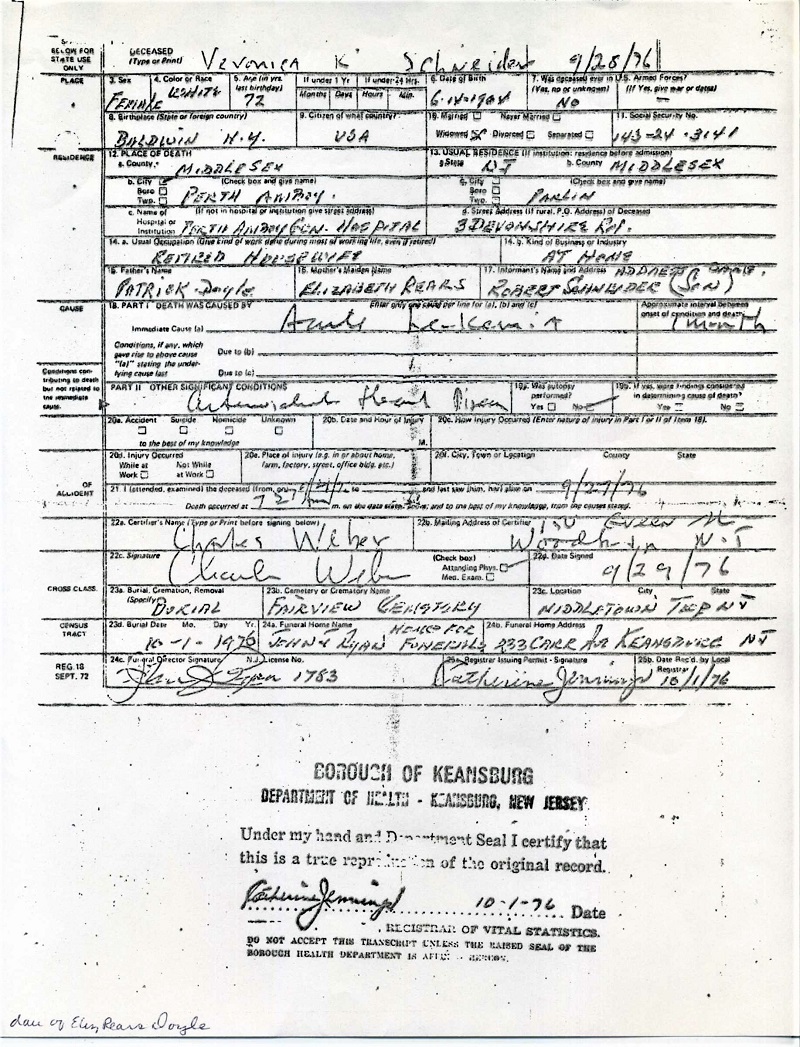 BELOW FOR STATE USE ONLY
DECEASED (Type or Print) Veronica K Schneider 9/28/76
PLACE
3. Sex 4. Color or Race 5. Age (in yrs. last birthday) If under 1 Yr. If under 24 Hrs. 6. Date of Birth 7. Was deceased ever in U.S. Armed Forces?
Months Days Hours Min. (Yes, no or unknown) (If Yes, give war or dates)
FEMALE WHITE 72 NO
8. Birthplace (State or foreign country) 9. Citizen of what country? 10. Married Never Married 11. Social Security No.
BALDWIN N.Y. USA Widowed Divorced Separated 143-24-3141
RESIDENCE
12. PLACE OF DEATH 13. USUAL RESIDENCE (If institution: residence before admission)
a. County MIDDLESEX a. State NJ b. County MIDDLESEX
b. City (Check box and give name) c. City (Check box and give name)
Boro Boro
Twp. PERTH AMBOY Twp. PARLIN
c. Name of Hospital or Institution (If not in hospital or institution give street address) d. Street Address (If rural, P.O. Address) of Deceased
PERTH AMBOY GEN. HOSPITAL 3 DEVONSHIRE
14. a. Usual Occupation (Give kind of work done during most of working life, even if retired) 14. b. Kind of Business or Industry
RETIRED HOUSEWIFE AT HOME
15. Father's Name 16. Mother's Maiden Name 17. Informant's Name and Address
PATRICK Doyle ELIZABETH REARS ROBERT SCHNEIDER (SON)
CAUSE
18. PART I DEATH WAS CAUSED BY Enter only one cause per line for (a), (b) and (c) Approximate interval between onset of condition and death
Immediate Cause (a) Acute Leukemia 1 month
Conditions, if any, which gave rise to above cause "(a)" stating the underlying cause last
Due to (b)
Due to (c)
Conditions contributing to death but not related to the immediate cause.
PART II OTHER SIGNIFICANT CONDITIONS 19a. Was autopsy performed? 19b. If yes, were findings considered in determining cause of death?
Heart Disease Yes No Yes No
20a. Accident Suicide Homicide Unknown 20b. Date and Hour of Injury 20c. How Injury Occurred (Enter nature of injury in Part I or II of item 18).
to the best of my knowledge M.
20d. Injury Occurred 20e. Place of injury (e.g. in or about home, farm, factory, street, office bldg. etc.) 20f. City, Town or Location County State
While at Work Not While at Work
OF ACCIDENT
21. I (attended, examined) the deceased (from, and last saw him, her) alive on 9/27/76
Death occurred at m. on the date stated above; and to the best of my knowledge, from the causes stated.
22a. Certifier's Name (Type or Print before signing below) 22b. Mailing Address of Certifier
Charles Weber Green
N.J
22c. Signature (Check box) 22d. Date Signed
Charles Weber Attending Phys. Med. Exam. 9/29/76
CROSS CLASS.
23a. Burial, Cremation, Removal (Specify) 23b. Cemetery or Crematory Name 23c. Location City State
BURIAL FAIRVIEW CEMETERY MIDDLETOWN TWP NJ
CENSUS TRACT
23d. Burial Date Mo. Day Yr. 24a. Funeral Home Name 24b. Funeral Home Address
10-1-1976 JOHN J RYAN HOME FOR FUNERALS 233 CARR AVE KEANSBURG NJ
REG. 18 SEPT. 72
24c. Funeral Director Signature N.J. License No. 25a. Registrar Issuing Permit - Signature 25b. Date Rec'd. by Local Registrar
John J Ryan 1783 Catherine Jennings 10/1/76
BOROUGH OF KEANSBURG
DEPARTMENT OF HEALTH - KEANSBURG, NEW JERSEY
Under my hand and Department Seal I certify that
this is a true reproduction of the original record.
Catherine Jennings 10-1-76 Date
REGISTRAR OF VITAL STATISTICS.
DO NOT ACCEPT THIS TRANSCRIPT UNLESS THE RAISED SEAL OF THE
BOROUGH HEALTH DEPARTMENT IS HEREON.
dau of Eliz Rears Doyle